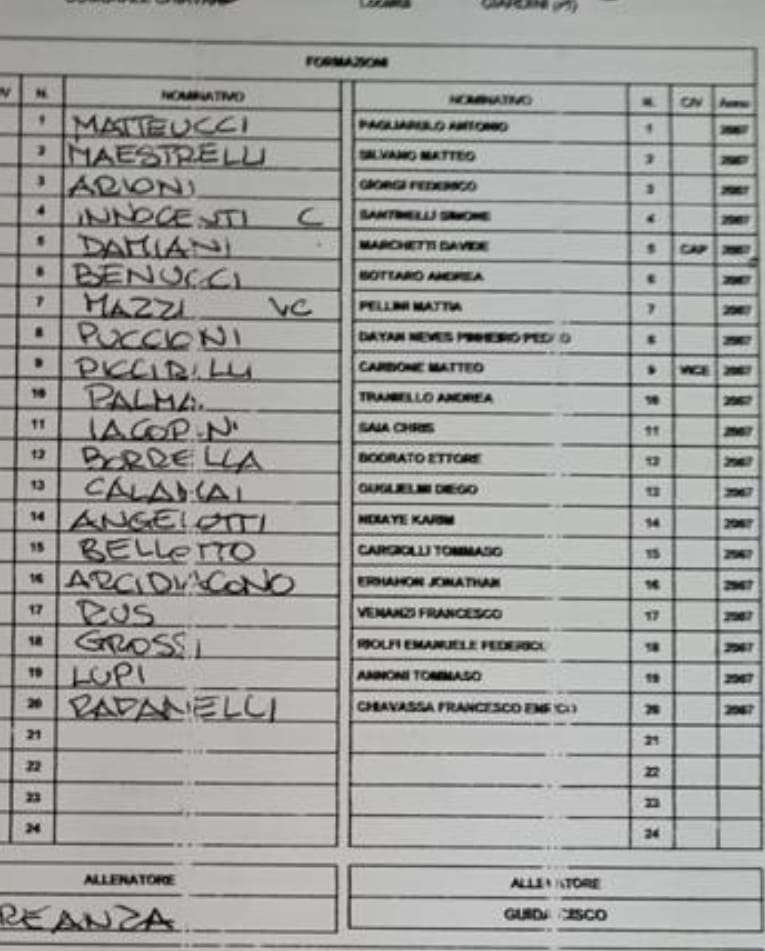 Località GIARDINI (PT)
FORMAZIONI
N. NOMINATIVO NOMINATIVO N. C/V Anno
1 MATTEUCCI PAGLIARULO ANTONIO 1 2007
2 MAESTRELLI SILVANO MATTEO 2 2007
3 ARIONI GIORGI FEDERICO 3 2007
4 INNOCENTI C SANTINELLI SIMONE 4 2007
5 DAMIANI MARCHETTI DAVIDE 5 CAP 2007
6 BENUCCI BOTTARO ANDREA 6 2007
7 MAZZI VC PELLINI MATTIA 7 2007
8 PUCCIONI DAYAN NEVES PINHEIRO PEDRO 8 2007
9 PICCIRILLI CARBONE MATTEO 9 VICE 2007
10 PALMA. TRANIELLO ANDREA 10 2007
11 IACOPINI SAIA CHRIS 11 2007
12 BORRELLA BODRATO ETTORE 12 2007
13 CALAMAI GUGLIELMI DIEGO 13 2007
14 ANGELOTTI NDIAYE KARIM 14 2007
15 BELLOTTO CARGIOLLI TOMMASO 15 2007
16 ARCIDIACONO ERHAHON JONATHAN 16 2007
17 RUS VENANZI FRANCESCO 17 2007
18 GROSSI RIOLFI EMANUELE FEDERICO 18 2007
19 LUPI ANNONI TOMMASO 19 2007
20 RAPANELLI CHIAVASSA FRANCESCO ENRICO 20 2007
21 21
22 22
23 23
24 24
ALLENATORE ALLENATORE
REANZA